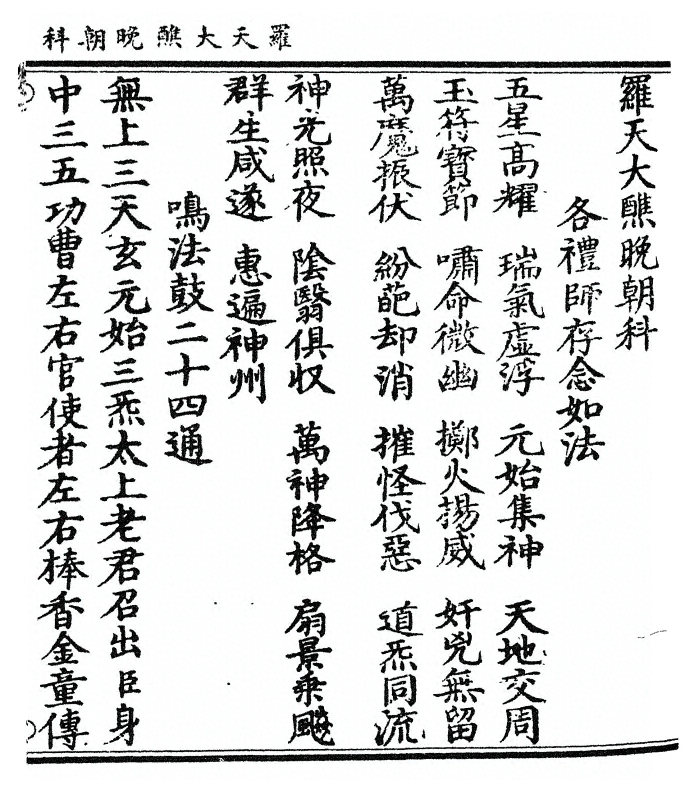 羅天大醮晚朝科
羅天大醮晚朝科
各禮師存念如法
五星高耀 瑞氣虛浮 元始集神 天地交周
玉符寶節 嘯命微幽 擲火揚威 奸兇無留
萬魔振伏 紛葩却消 摧怪伐惡 道炁同流
神光照夜 陰翳俱収 萬神降格 扇景乘飈
群生咸遂 惠遍神州
鳴法鼓二十四通
無上三天玄元始三炁太上老君召出臣身
中三五功曹左右官使者左右捧香金童傳